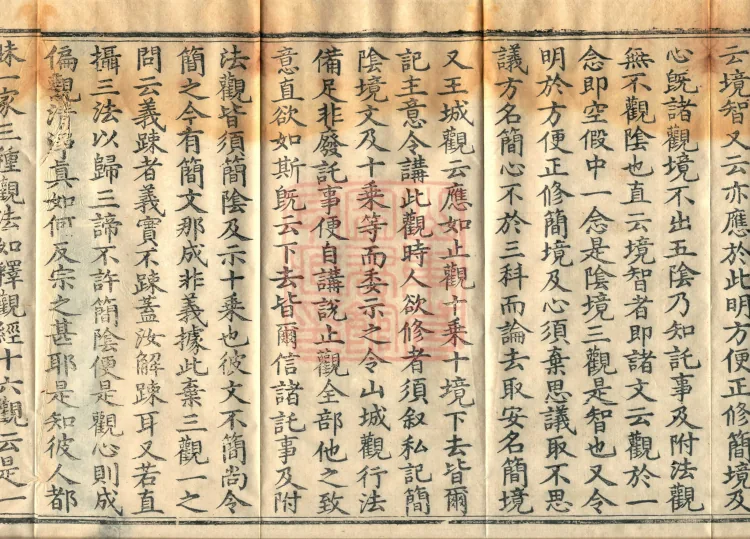 云境智又云亦應於此明方便正修簡境及
心旣諸觀境不出五陰乃知託事及附法觀
無不觀陰也直云境智者即諸文云觀於一
念即空假中一念是陰境三觀是智也又令
明於方便正修簡境及心須棄思議取不思
議方名簡心不於三科而論去取安名簡境
又王城觀云應如止觀十乘十境下去皆爾
記主意令講此觀時人欲修者須叙私記簡
陰境文及十乘等而委示之令山城觀行法
備足非廢託事便自講說止觀全部他之致
意直欲如斯旣云下去皆爾信諸託事及附
法觀皆須簡陰及示十乘也彼文不簡尚令
簡之今有簡文那成非義據此棄三觀一之
問云義踈者義實不踈蓋汝解踈耳又若直
攝三法以歸三諦不許簡陰便是觀心則成
偏觀清淨真如何反宗之甚耶是知彼人都
昧一家三種觀法如釋觀經十六觀云是一